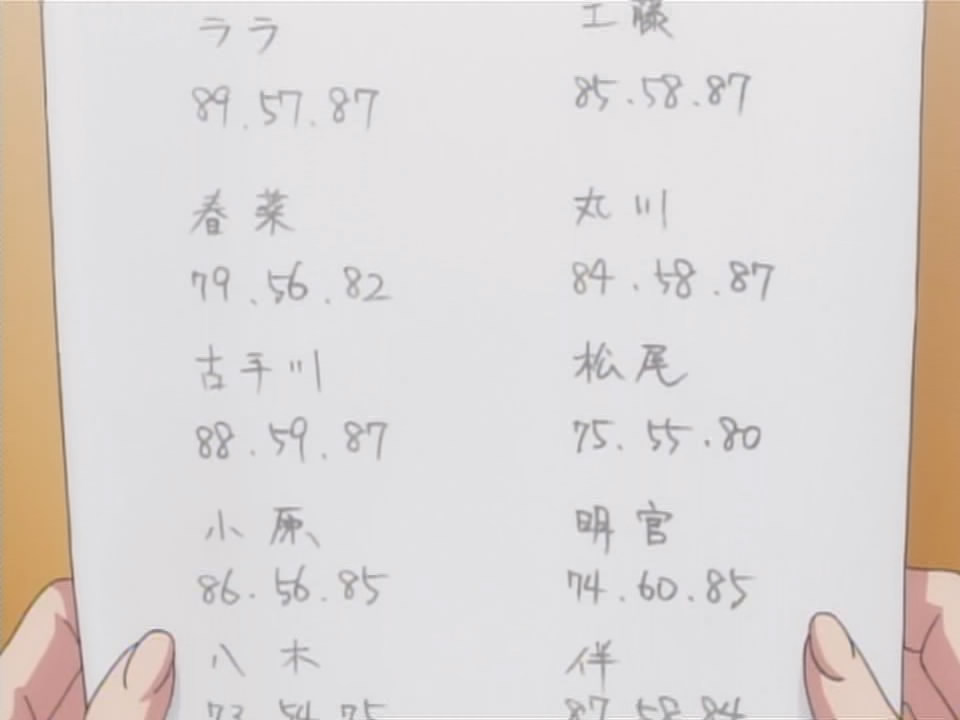 ララ
89.57.87
春菜
79.56.82
古手川
88.59.87
小原
86.56.85
八木
73.54.75
工藤
85.58.87
丸川
84.58.87
松尾
75.55.80
明官
74.60.85
伴
87.58.84